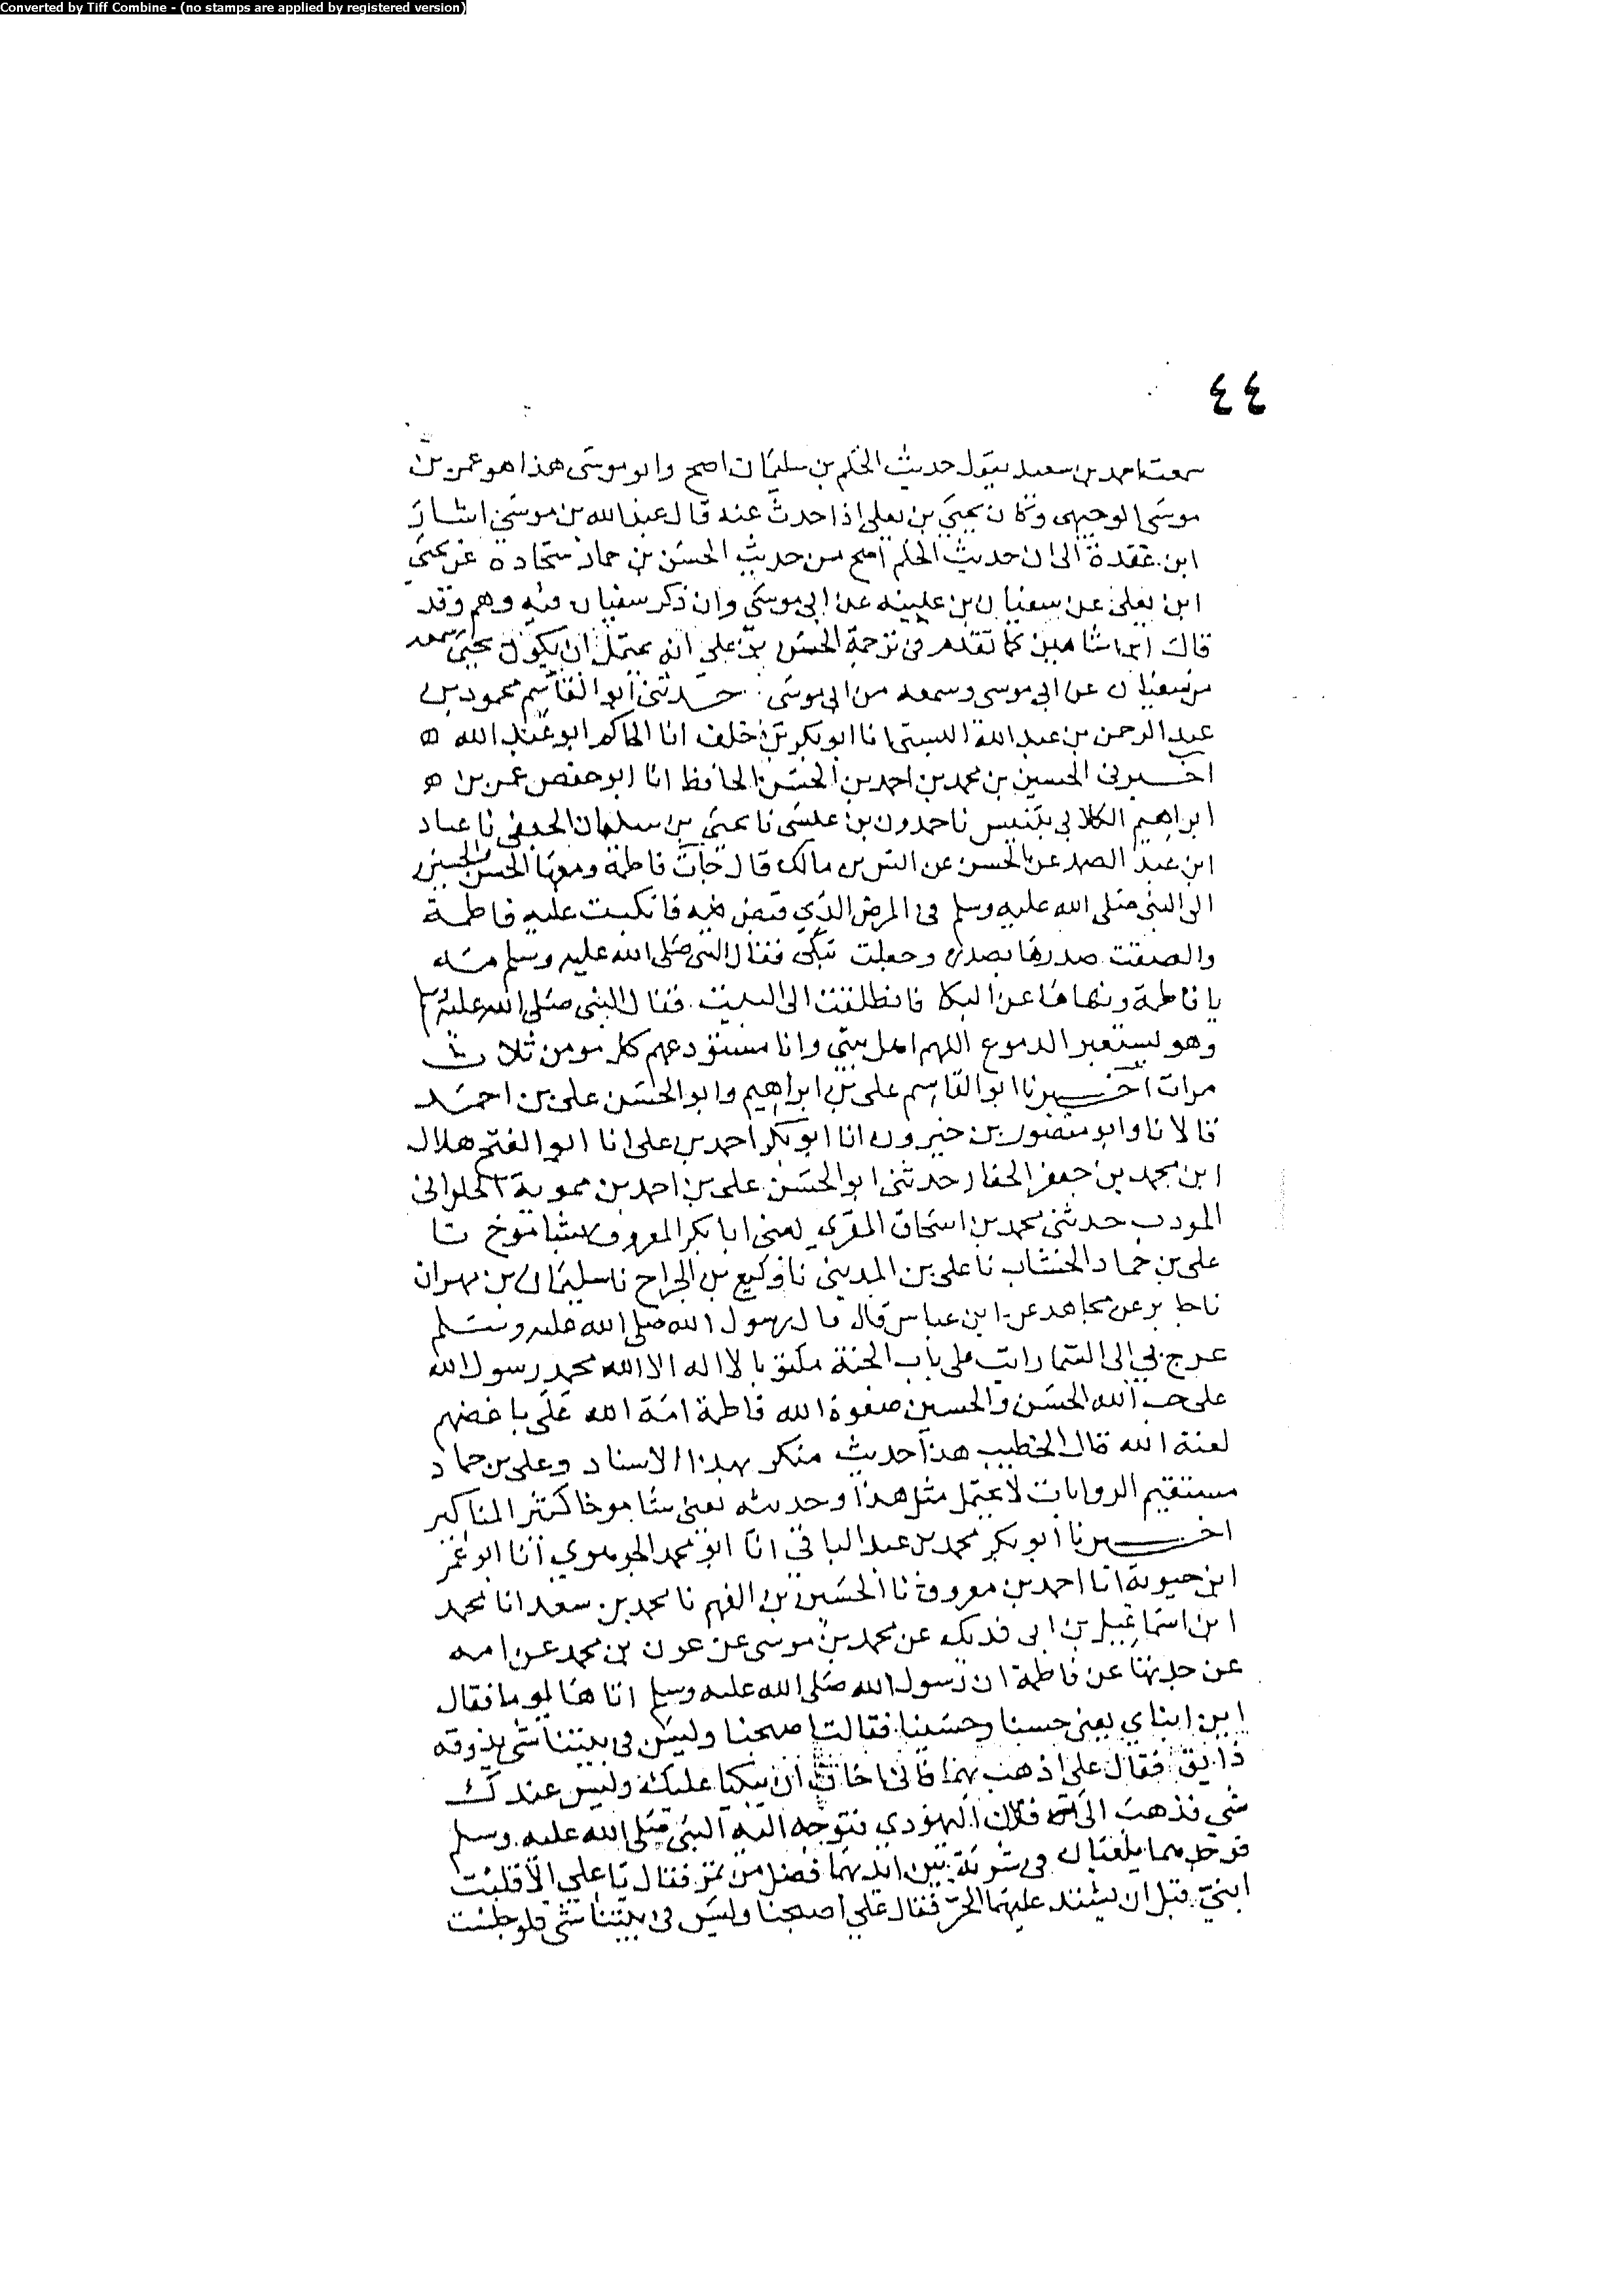 Converted by Tiff Combine - (no stamps are applied by registered version)
٤٤
سمعت احمد بن سعيد يقول حديث الحكم بن سليمان اصح وابو موسى هذا هو عمر بن
موسى الوجيهى وكان يحيى بن يعلى اذا حدث عنه قال عبد الله بن موسى اشار
ابن عقدة الى ان حديث الحكم اصح من حديث الحسن بن حماد سجادة عن يحيى
ابن يعلى عن سفيان بن عيينه عن ابى موسى وان ذكر سفيان فيه وهم وقد
قال ابن شاهين كما تقدم فى ترجمة الحسن بن على انه يحتمل ان يكون يحيى سمعه
من سفيان عن ابى موسى وسمعه من ابى موسى حدثنى ابوالقاسم محمود بن
عبد الرحمن بن عبد الله البستى انا ابو بكر بن خلف انا الحاكم ابو عبد الله ه
اخبرنى الحسين بن محمد بن احمد بن الحسن الحافظ انا ابو حفص عمر بن ه
ابراهيم الكلابى بتنيس نا حمدون بن عيسى نا يحيى بن سليمان الجعفى نا عباد
ابن عبد الصمد عن الحسن عن انس بن مالك قال جات فاطمة ومعها الحسن والحسين
الى النبى صلى الله عليه وسلم فى المرض الذي قبض فيه فانكبت عليه فاطمة
والصقت صدرها بصدره وجعلت تبكى فقال النبى صلى الله عليه وسلم مه
يا فاطمة ونهاها عن البكا فانطلقت الى البيت فقال النبى صلى الله عليه وسلم
وهو يستعبر الدموع اللهم اهل بيتي وانا مستودعهم كل مومن ثلاث
مرات اخبرنا ابو القاسم على بن ابراهيم وابو الحسن على بن احمد
قالا نا وابو منصور بن خيرون انا ابو بكر احمد بن على انا ابو الفتح هلال
ابن محمد بن جعفر الحفار حدثنى ابو الحسن على بن احمد بن مموية الحلوانى
المودب حدثنى محمد بن اسحاق المقري يعنى ابا بكر المعروف بشاموخ نا
على بن حماد الخشاب نا على بن المدينى نا وكيع بن الجراح نا سليمان بن مهران
نا جابر عن مجاهد عن ابن عباس قال قال رسول الله صلى الله عليه وسلم
عرج بي الى السما رايت على باب الجنة مكتوبا لا اله الا الله محمد رسول الله
على حب الله الحسن والحسين صفوة الله فاطمة امة الله على باغضهم
لعنة الله قال الخطيب هذا حديث منكر بهذا الاسناد وعلى بن حماد
مستقيم الروايات لا يحتمل مثل هذا وحديثه يعنى شاموخا كثير المناكير
اخبرنا ابو بكر محمد بن عبد الباقى انا ابو محمد الجوهري انا ابو عمر
ابن حيوية انا احمد بن معروف نا الحسين بن الفهم نا محمد بن سعد انا محمد
ابن اسماعيل بن ابى فديك عن محمد بن موسى عن عون بن محمد عن امه
عن جدتها عن فاطمة ان رسول الله صلى الله عليه وسلم اتاها يوما فقال
اين ابناي يعنى حسنا وحسينا فقالت اصبحنا وليس فى بيتنا شى يذوقه
ذايق فقال على اذهب بهما فانى اخاف ان يبكيا عليك وليس عندك
شي فذهب الى فلان اليهودي فتوجه اليه النبى صلى الله عليه وسلم
فوجدهما يلعبان فى شربة بين ايديهما فضل من تمر فقال يا على الا قلبت
ابني قبل ان يشتد عليهما الحر فقال علي اصبحنا وليس فى بيتنا شى فلو جلست